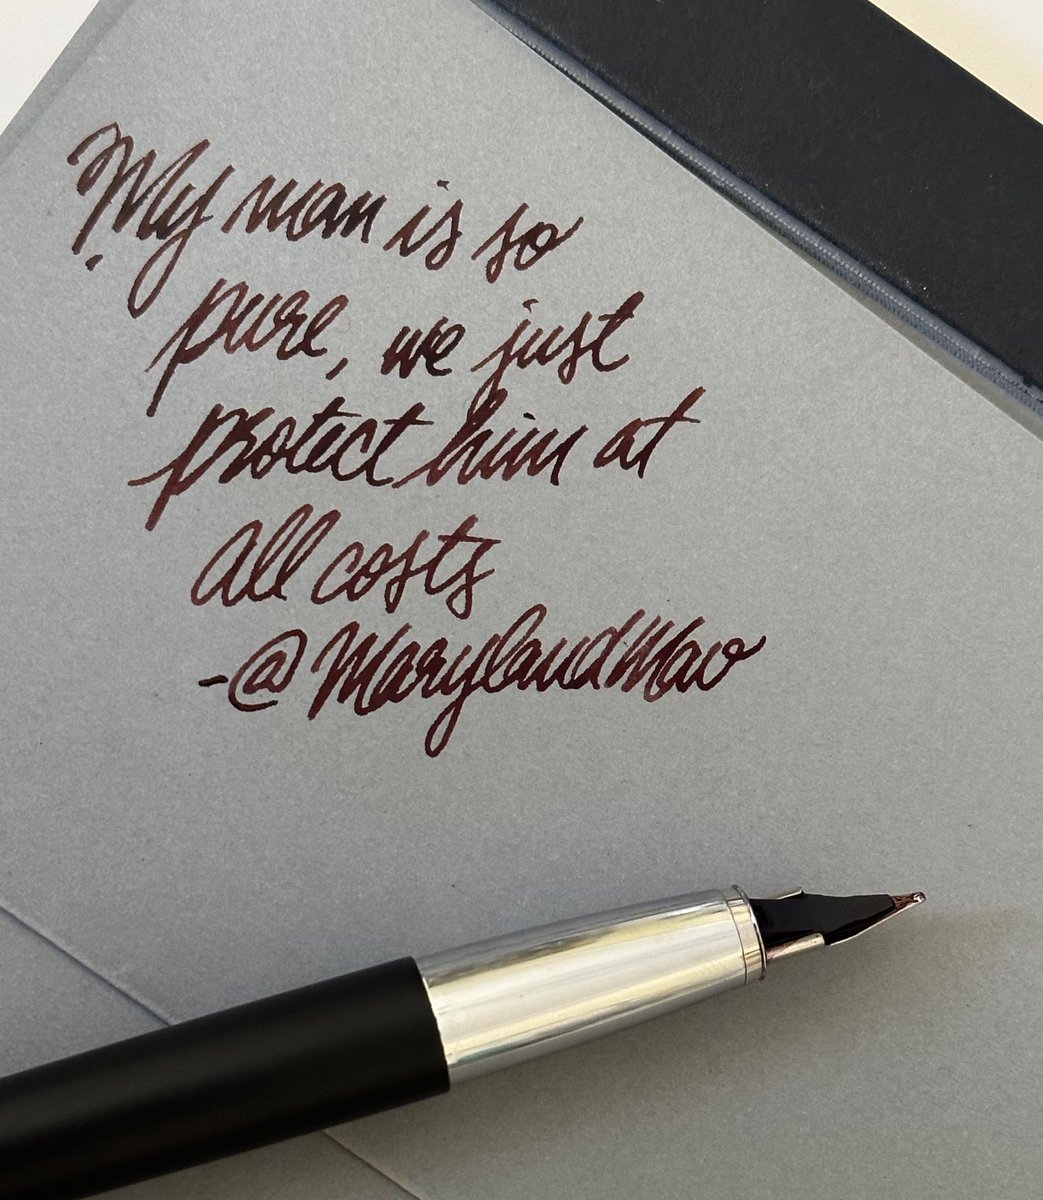 My man is so
pure, we just
protect him at
all costs
-@MarylandMao